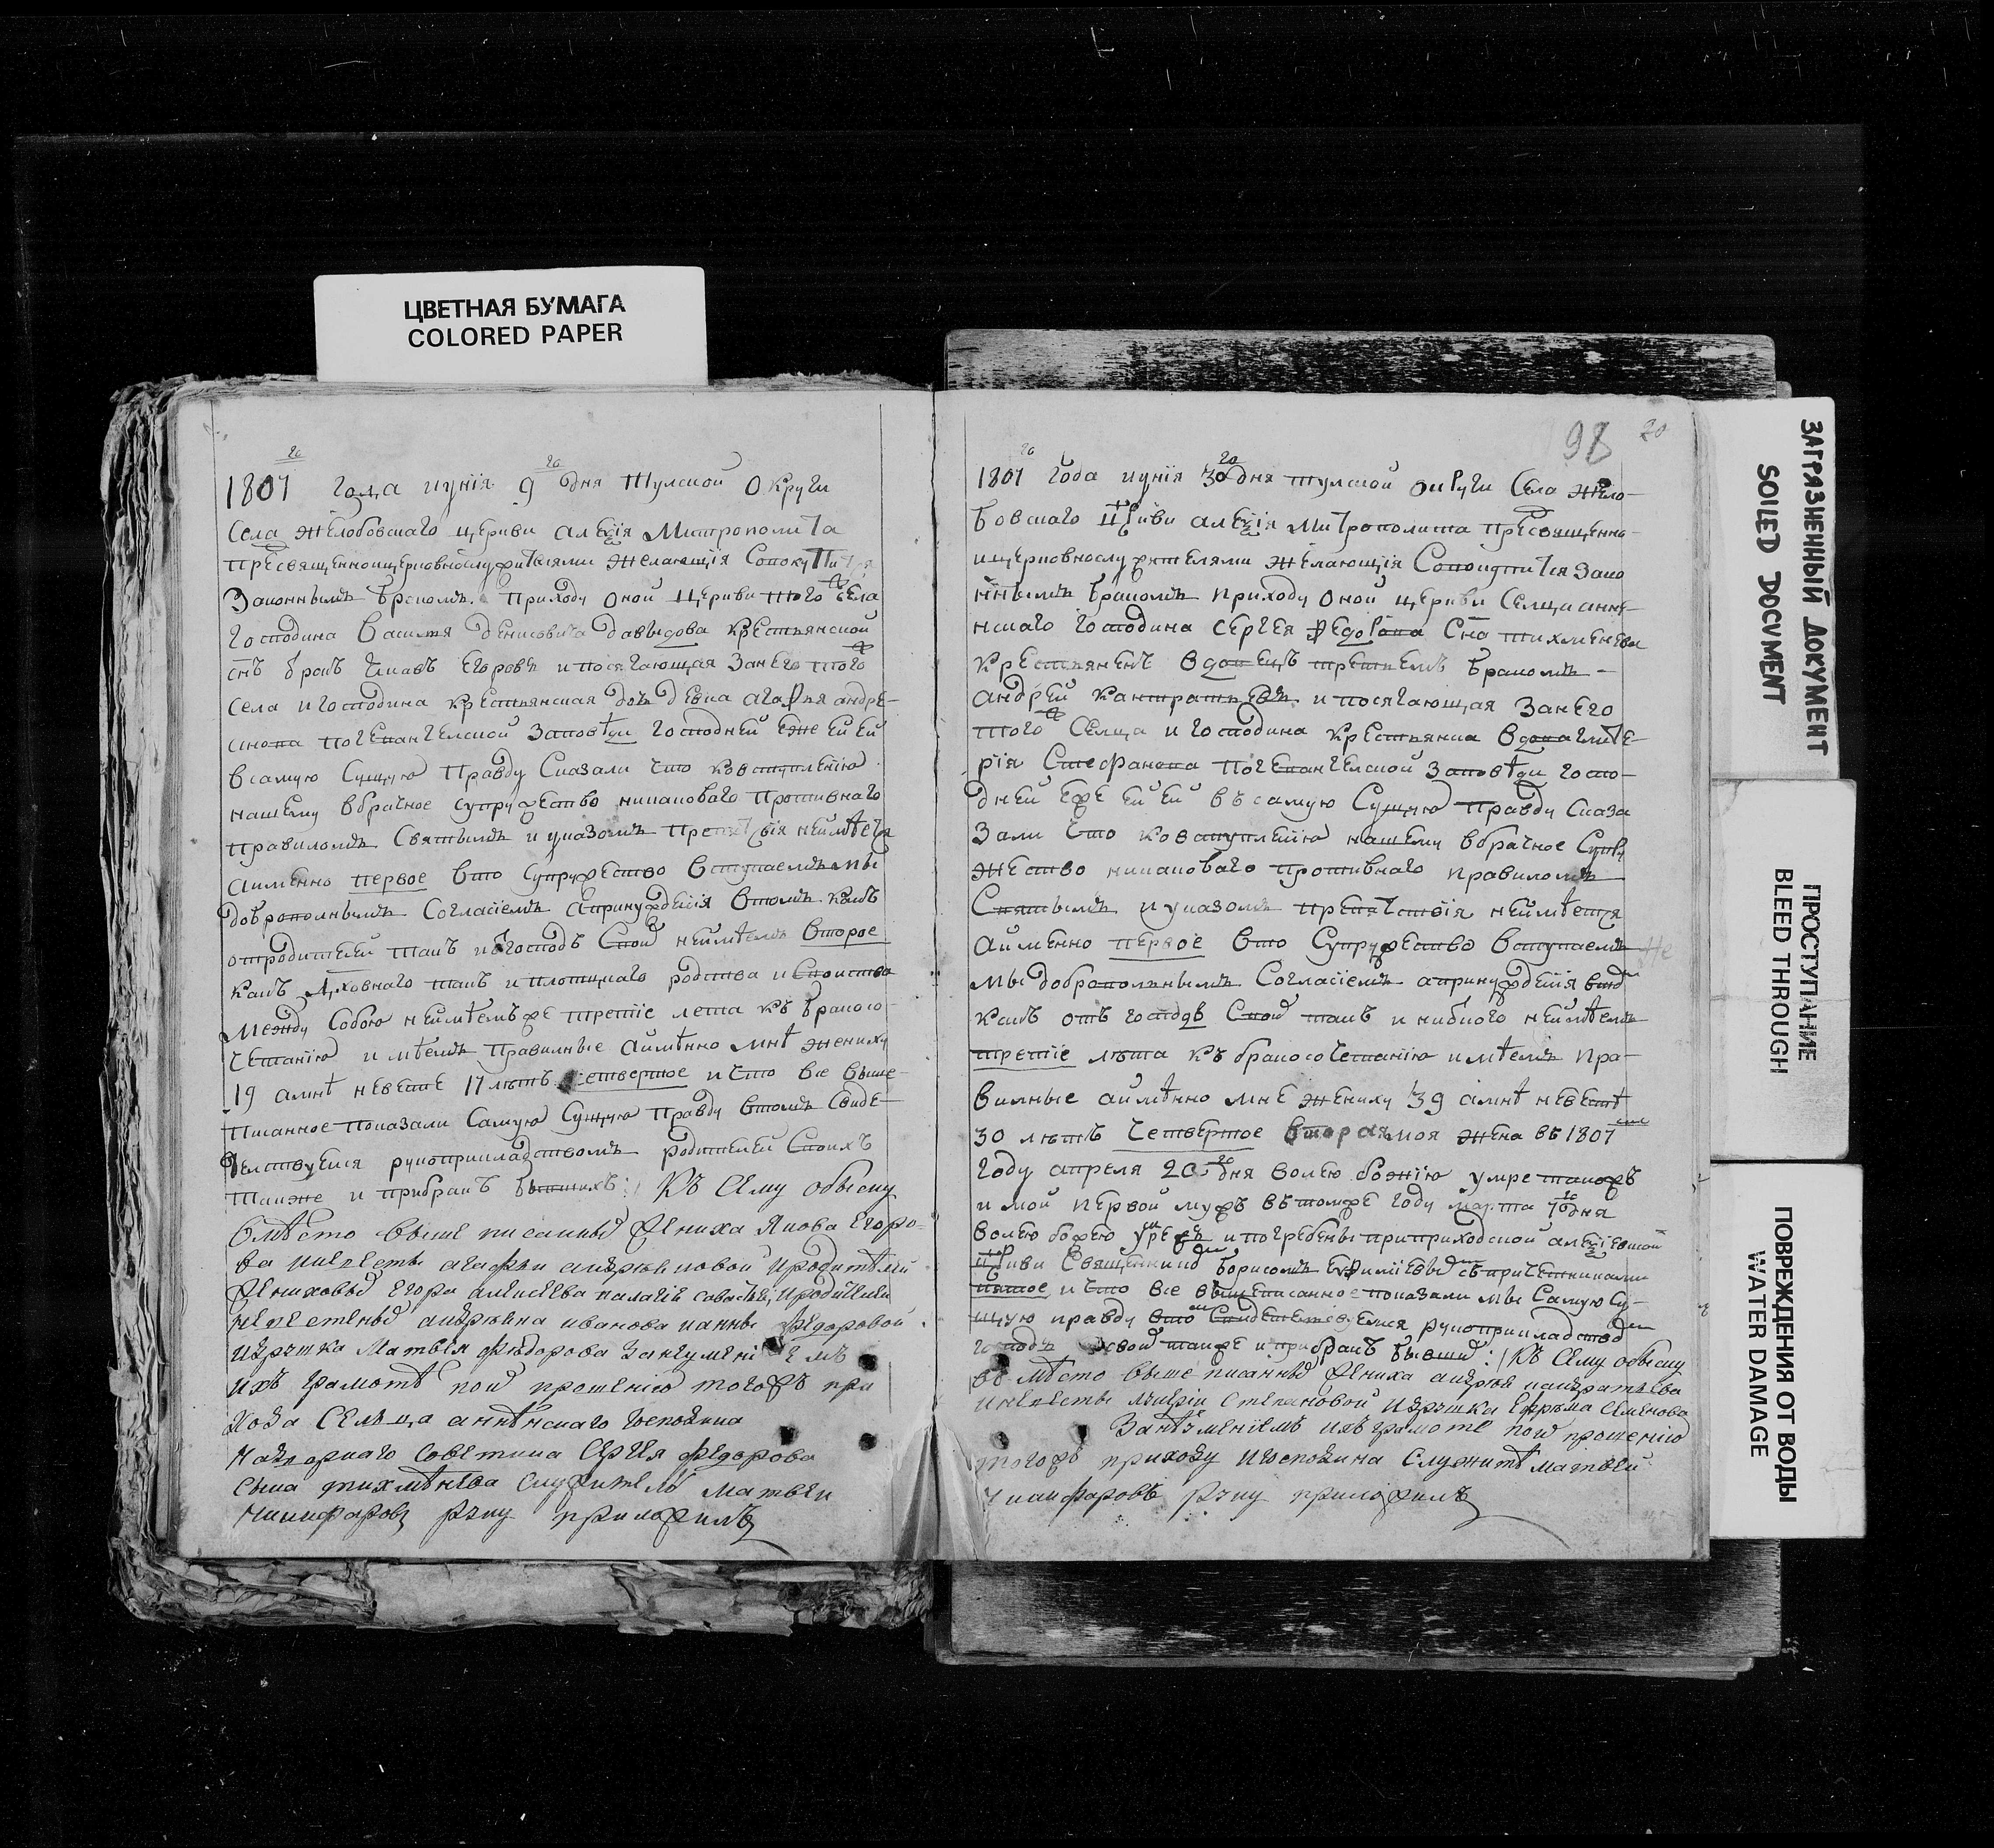 ЦВЕТНАЯ БУМАГА
COLORED PAPER
1801го года иунїя 9го дня тулской округи
села желобовскаго церкви алеѯія митрополита
пресвященноицерковнослужителями желающія
законнымъ бракомъ приходу оной церкви того села
господина василья денисовича давыдова крестьянской
снъ яковъ егоровъ и посягающая занего того
села игосподина крестьянская дочь девка агафья андре-
по геѵангелской заповѣди господней еже ей ей
всамую сущую правду сказали что ковступленію
нашему вбрачное супружество никаковаго противнаго
правиломъ святымъ и указомъ препятъствія неимѣется
аименно первое вто супружество вступаемъ мы
доброволнымъ согласіемъ апринужденія втомъ какъ
отродителей такъ иогосподъ своихъ неимѣемъ второе
какъ духовнаго такъ и плотцкаго родства и свойства
между собою неимѣемъже третіе лета къ бракосо-
четанію имѣемъ правилные аимѣнно мнѣ жениху
19 амнѣ невесте 17 лѣтъ четвертое и что все выше-
писанное показали самую сущую правду втомъ свиде-
телствуемся рукоприкладствомъ родителей своихъ
такоже и прибракѣ бывшихъ :/ Къ сему обыску
вмѣсто выше писанныхъ жениха якова егоро-
ва иневесты агафьи иродителей
жениховыхъ егора алексѣева иродителей
невестиныхъ андрѣяна иванова ианны федоровой
идружка матвея федорова занеумениемъ
ихъ грамотѣ поихъ прошенію тогожъ при
хода селъца аннѣнскаго господина
надворнаго советника сергея федорова
сына тихмѣнева служитель матвеи
никифоровъ руку приложилъ
98
20
1801го года иунїя 30го дня тулской округи села жело-
бовскаго цркви алеѯія митрополита пресвященно-
ицерковнослужителями желающія совокупится зако
ннымъ бракомъ приходу оной церкви селца анне-
нскаго господина сергея федорова сна тихменева
крестьяненъ вдовецъ третьемъ бракомъ
андрей кантратьевъ и посягающая занего
того селца и господина крестьянка вдова глике-
рія стефанова по геѵангелской заповѣди госпо-
дней еже ей ей въ самую сущую правду сказа
зали что ковступленію нашему вбрачное супру
жество никаковаго противнаго правиломъ
святымъ и указомъ препятствія неимѣется
аименно первое вто супружество вступаемъ
мы доброволнымъ согласіемъ апринужденія
какъ отъ господъ своихъ такъ и никого неимѣемъ
третіе лѣта къ бракосочетанію имѣемъ пра-
вилные аимѣнно мне жениху 39 амнѣ невестѣ
30 лѣтъ четвертое вторая моя жена въ 1801
году апреля 20го дня волею божію умре такожъ
и мой первой мужъ въ томже году марта дня
волею божею и погребены приприходской алеѯіевской
цркви священникомъ борисомъ съпричетниками
пятое и что все вышеписанное показали мы самую су-
щую правду рукоприкладствомъ
господъ своихъ такоже и прибракѣ бывшихъ :/ Къ сему обыску
вмѣсто выше писанныхъ жениха андрея кандратьева
иневесты степановой идружка ефрѣма семенова
занеѣмениемъ ихъ грамоте поихъ прошению
тогожъ приходу игосподина служитѣль матвей
никифаровъ руку приложилъ
ЗАГРЯЗНЕННЫЙ ДОКУМЕНТ
SOILED DOCUMENT
ПРОСТУПАНИЕ
BLEED THROUGH
ПОВРЕЖДЕНИЯ ОТ ВОДЫ
WATER DAMAGE